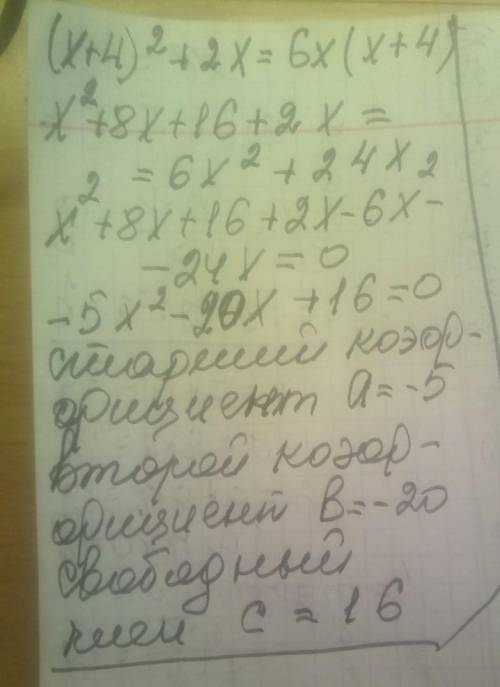 (x+4)² + 2x = 6x(x+4)
x² + 8x + 16 + 2x =
= 6x² + 24x
x² + 8x + 16 + 2x - 6x² -
- 24x = 0
-5x² - 20x + 16 = 0
старший коэф-
фициент a = -5
второй коэф-
фициент b = -20
свободный
член c = 16